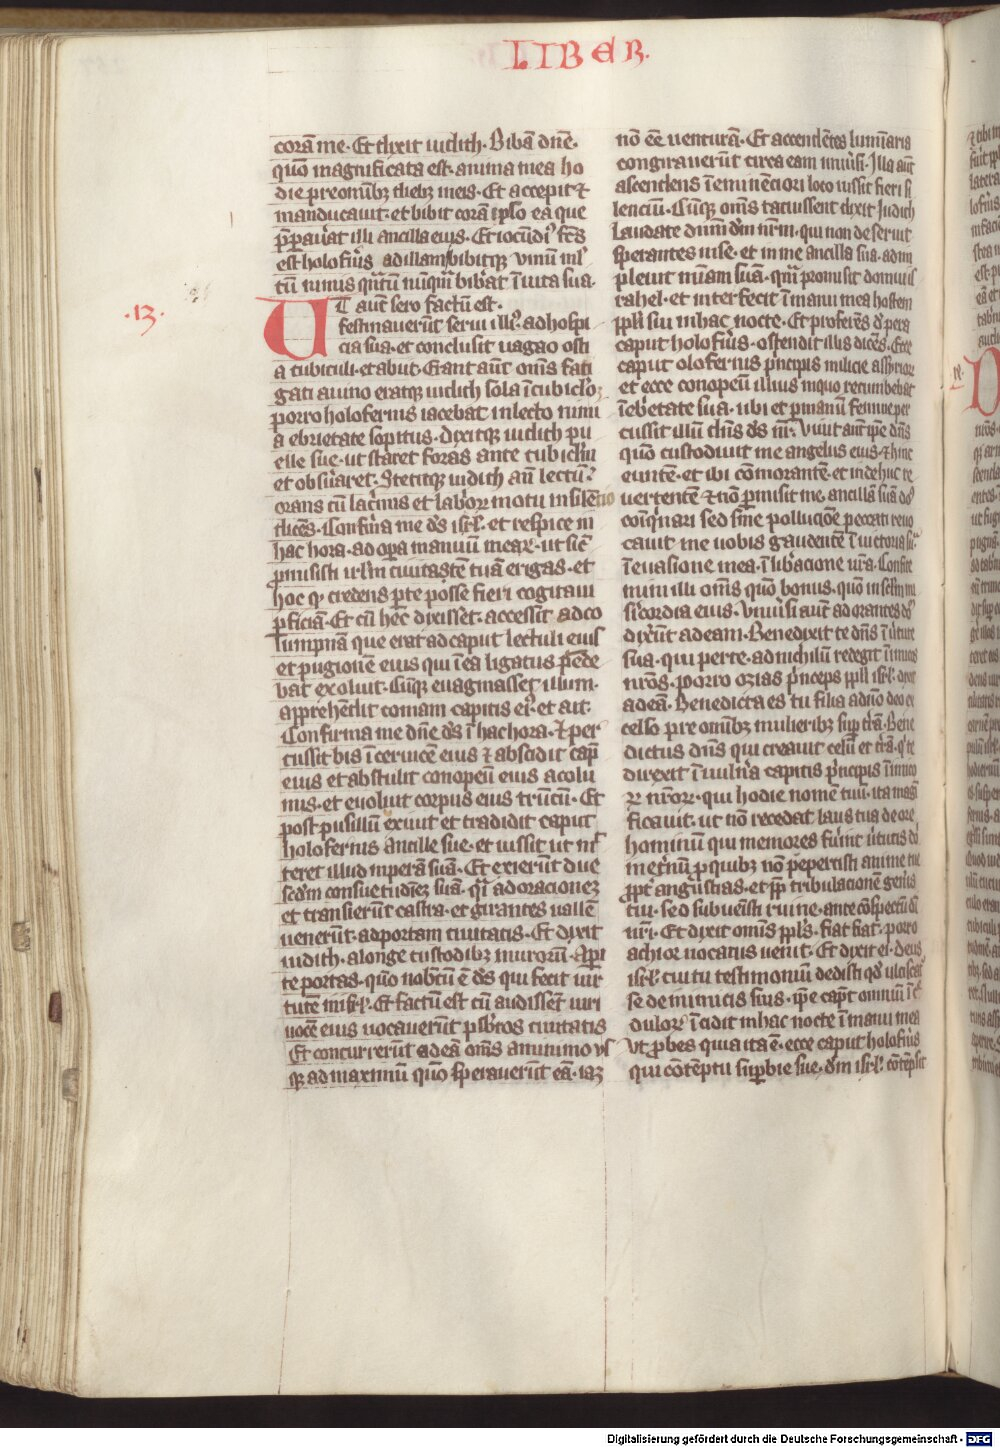 LIBER.
corā me. Et dixit iudith. Bibā dn̄e.
quō magnificata est anima mea ho
die pre omībꝫ diebꝫ meis. Et accepit ⁊
manducauit. et bibit corā ipso ea que
p̄pauat illi ancilla eius. Et iocūdꝰ fcūs
est holofnꝰ ad illam bibitqꝫ vinū ml
tū nimis q̄ntū nūqm̄ bibat ī uita sua.
.13.
UT aut̄ sero factū est.
festinauerūt serui illiꝰ ad hospi
cia sua. et conclusit uagao osti
a cubiculi et abiit. Erant aūt om̄s fati
gati a uino eratqꝫ iudith sola ī cubiclo.
porro holofernis iacebat in lecto nimi
a ebrietate sopitus. dixitqꝫ iudith pu
elle sue. ut staret foras ante cubiclm̄
et obsuaret. Stetitqꝫ iudith an̄ lectū.
orans cū lacimis et labior motu in silēcio
dicēs. Confirma me ds̄ isrl. et respice in
hac hora. ad opa manuū mear. ut sic̄
promisisti irlm ciuitatē tuā erigas. et
hoc qꝫ credens per te posse fieri cogitaui
pficiā. Et cū hec dixisset. accessit ad co
lumpnā que erat ad caput lectuli eius
et pugionē eius qui ī ea ligatus pēde
bat exoluit. Cūqꝫ euaginasset illum.
apprehēdit comam capitis eiꝰ et ait.
Confirma me dn̄e ds̄ ī hac hora. Et per
cussit bis ī ceruicē eius ⁊ abscidit capꝰ
eius et abstulit conopeū eius a colu
nis. et euoluit corpus eius trūcū. Et
post pusillū exiuit et tradidit caput
holofernis ancille sue. et iussit ut mit
teret illud in perā suā. Et exierūt due
scdm consuetudinē suā. q̄i ad oracionē
et transierūt castra. et girantes uallē
uenerūt. ad portam ciuitatis. Et dixit
iudith. a longe custodibꝫ murorū. Api
te portas. quō nobcū ē ds̄ qui fecit uir
tutē in isrl. Et factū est cū audissēt uiri
uocē eius uocauerūt psbros ciuitatis
Et concurrerūt ad eā om̄s a minimo us
qꝫ ad maximū quō sperauerūt eā. iaꝫ
nō eē uenturā. Et accendētes luminaria
congirauerūt circa eam uniūsi. Illa aūt
ascendens ī eminēciori loco iussit fieri si
lenciū. Cūqꝫ om̄s tacuissent dixit Judich
Laudate dnm dm̄ nrm. qui non deseruit
sperantes in se. et in me ancilla sua. adim
pleuit mīam suā. qm̄ promisit domui
rahel. et interfecit ī manu mea hostem
ppli sui in hac nocte. Et proferēs de pera
caput holofnis. ostendit illis dicēs. Ecce
caput olofernis p̄ncipis milicie assyrior
et ecce conopeū illius in quo recumbebat
ī ebrietate sua. ubi et p manū femine per
cussit illū dn̄s ds̄ nr. Viuit aūt ipe dn̄s
quō custodiuit me angelus eius. et hinc
euntē. et ibi cōmorantē. et inde huc re
uertentē ⁊ nō pmisit me. ancillā suā ds̄
coinq̄nari sed sine pollucōe peccati reuo
cauit me uobis gaudentē ī uictoria su.
ī euasione mea. ī libacione ura. Confite
mini illi om̄s quō bonus. quō in sclm mi
sicordia eius. Vniusi aūt adorantes dn̄
dixēut ad eam. Benedixit te dn̄s ī ūtute
sua. qui per te. ad nichilū redegit inimicos
nros. porro ozias p̄nceps ppli isrl. dixit
ad eā. Benedicta es tu filia a dn̄o deo ex
celso pre om̄ibꝫ mulieribꝫ sup trā. Bene
dictus dn̄s qui creauit celū et trā. q te
direxit ī uulna capitis p̄ncipis inimico
r nror. qui hodie nomē tuū. ita magi
ficauit. ut nō recedat laus tua de ore
hominū qui memores fuint ūtutis dn̄
in et̄nū p quibꝫ nō p̄epercisti anime tue
ppt angustias. et p̄p tribulacionē genis
tui. sed subueisti ruine. ante cōspectū di
nri. Et dixit om̄s ppls. fiat fiat. porro
achior uocatus uenit. Et dixit ei. deus
isrl. cui tu testimoniū dedisti qd ulciscat
se de inimicis suis. ipe capt omniū ī c
dulor ī cidit in hac nocte ī manu mea
Vt probes quia ita ē. ecce caput holofnis
qui cōtēptu supbie sue. dm isrl. cōtēpsit
Digitalisierung gefördert durch die Deutsche Forschungsgemeinschaft - DFG